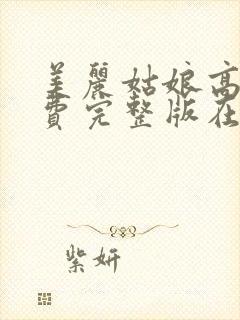 美麗姑娘高
費完整版在
紫妍